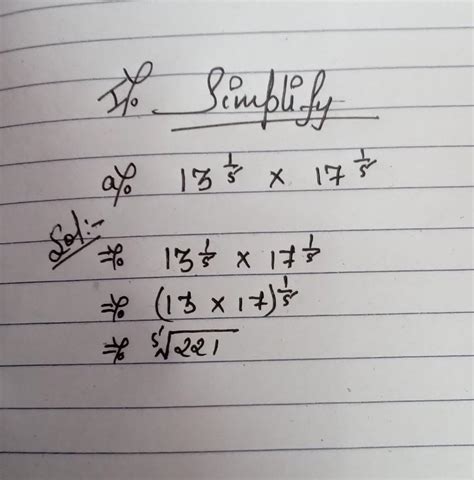 I% Simplify
a% 13^(1/5) × 17^(1/5)
Sol:-
=% 13^(1/5) × 17^(1/5)
=% (13 × 17)^(1/5)
=% ⁵√221